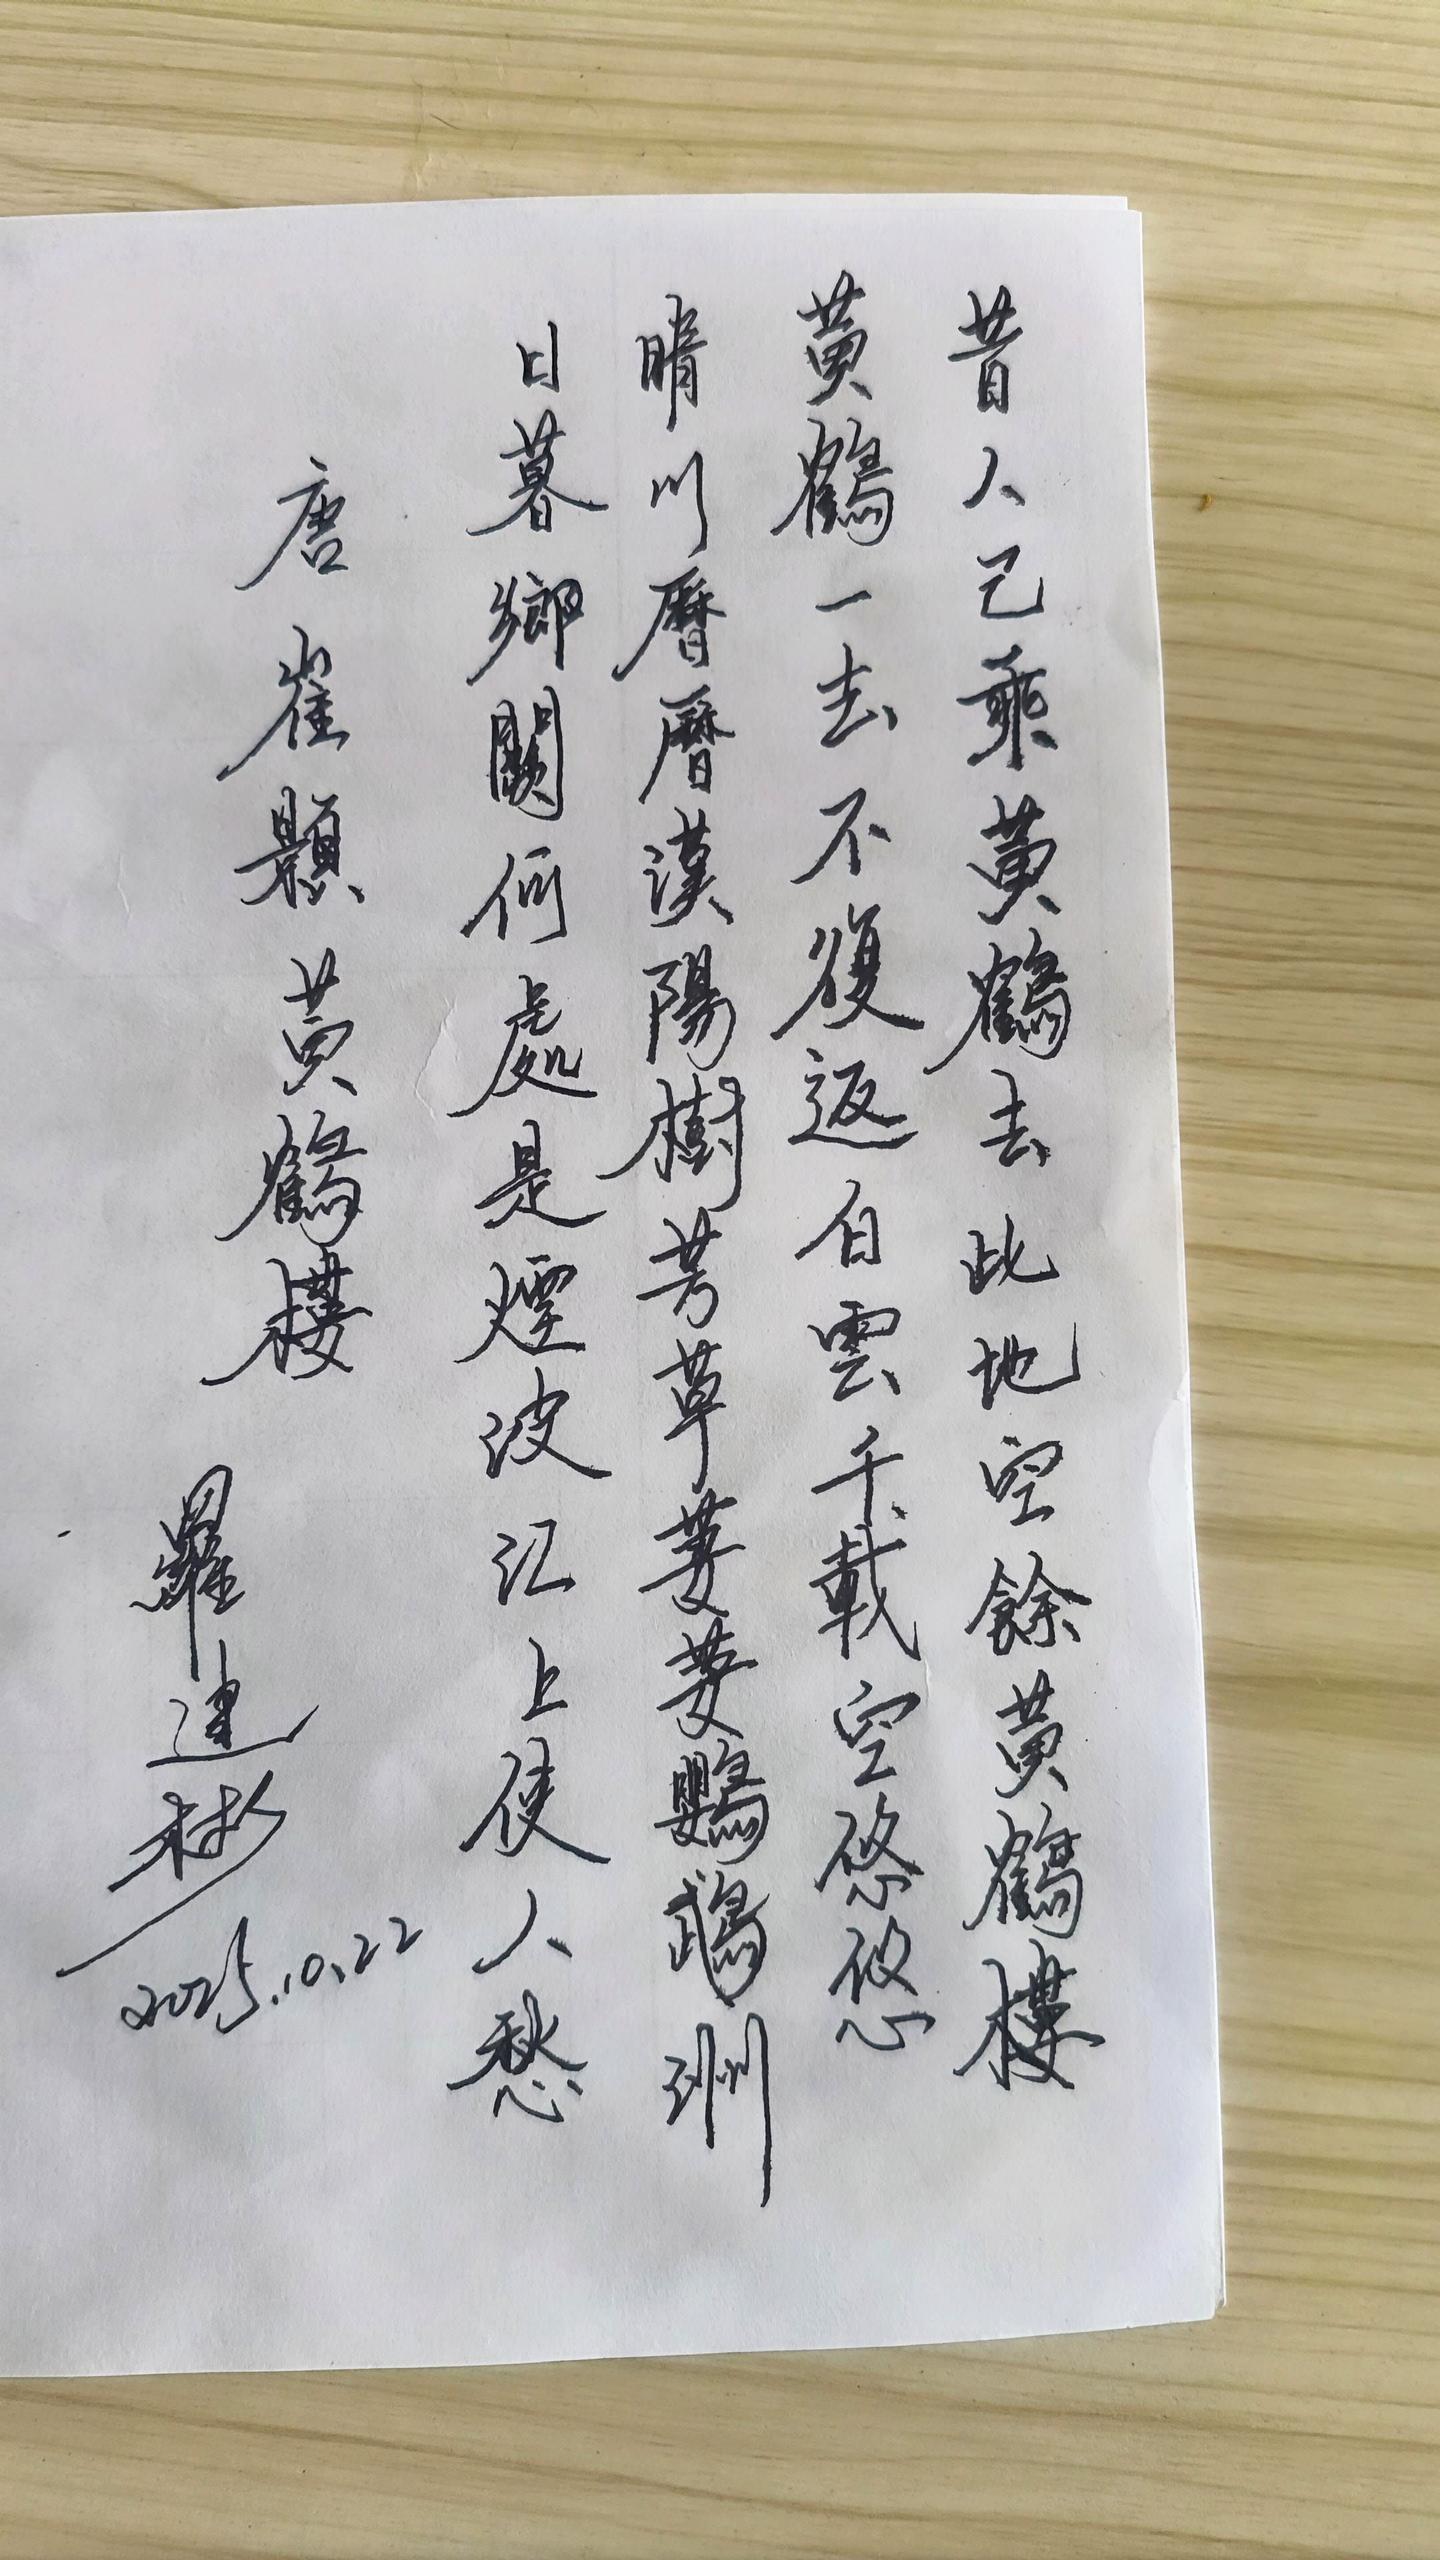 昔人已乘黃鶴去此地空餘黃鶴樓
黃鶴一去不復返白雲千載空悠悠
晴川曆曆漢陽樹芳草萋萋鸚鵡洲
日暮鄉關何處是煙波江上使人愁
唐崔顥黃鶴樓
羅建彬
2025.10.22